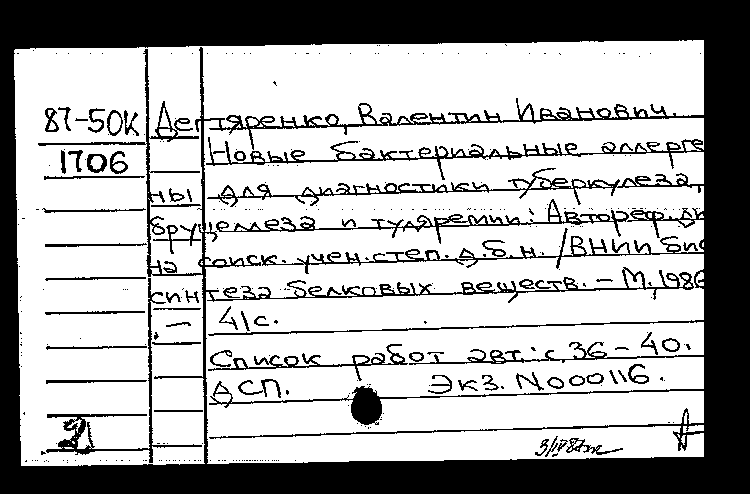 87-50К Дегтяренко, Валентин Иванович.
1706 Новые бактериальные аллерге
ны для диагностики туберкулеза,
бруцеллеза и туляремии: Автореф. ди
на соиск. учен. степ. д.б.н. /ВНИИ био
синтеза белковых веществ. – М., 1986
. – 41с.
Список работ авт.: с. 36 – 40.
ДСП. Экз. N000116.